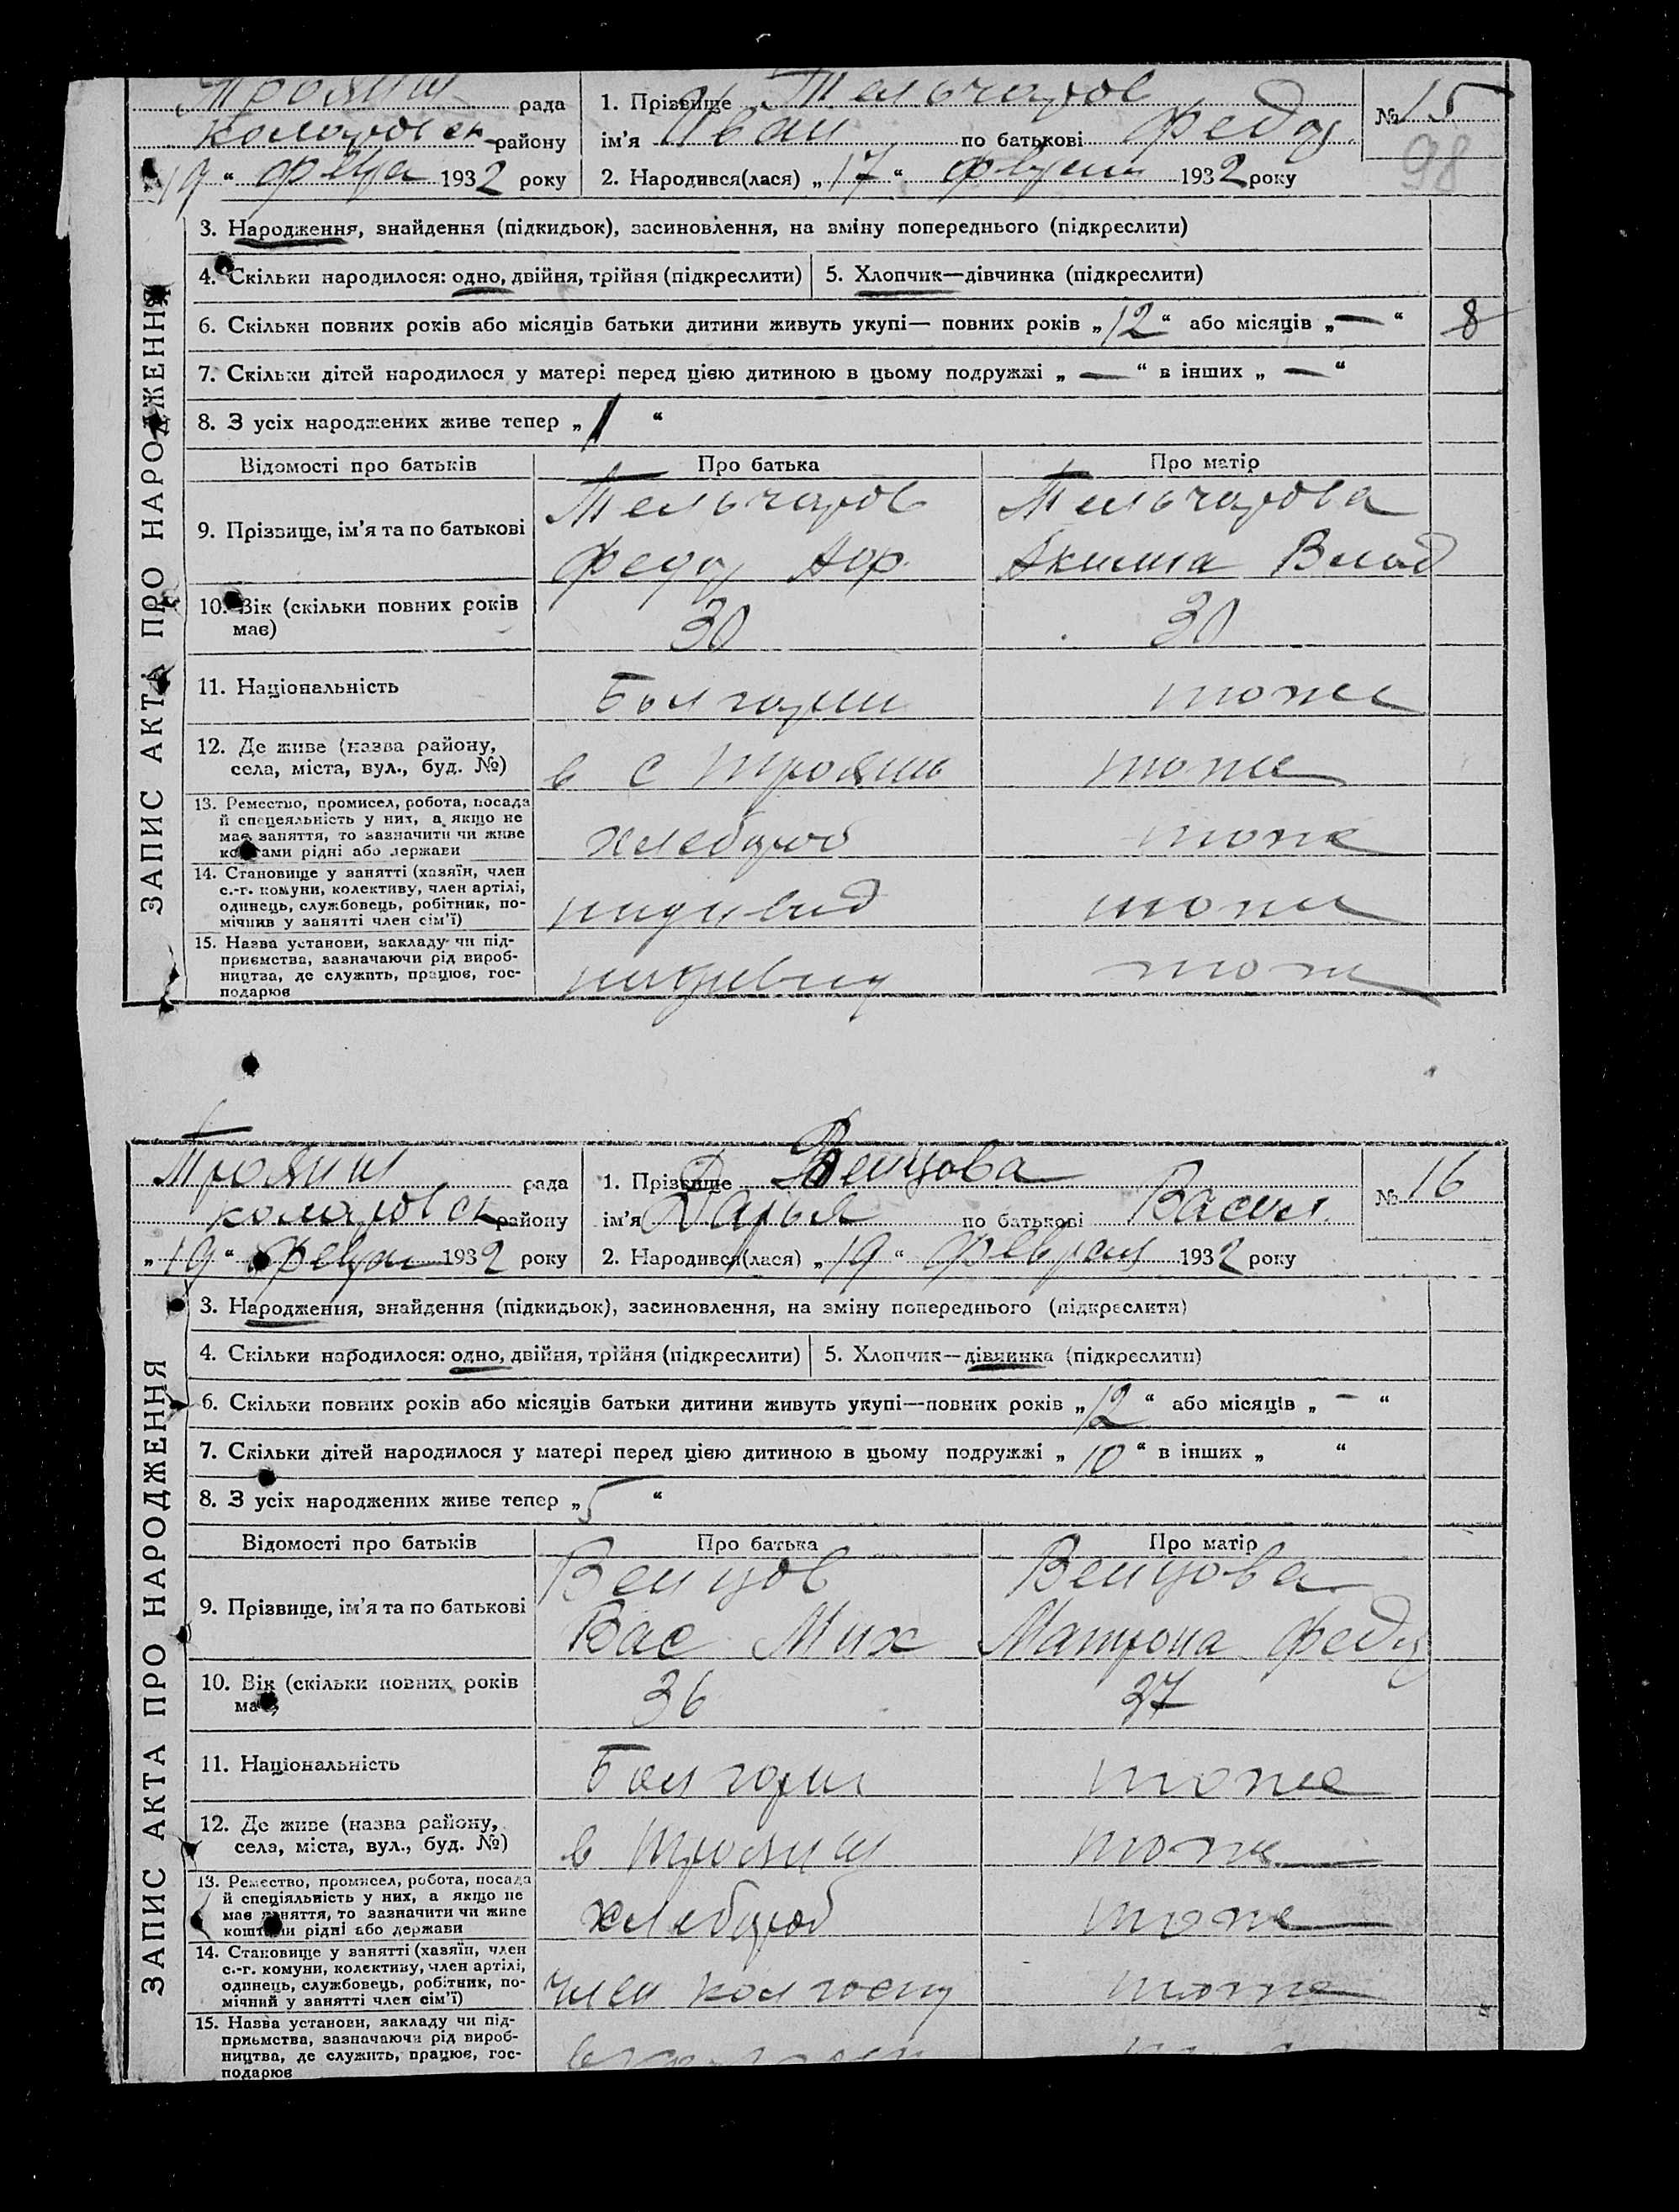 Трояни рада
Коларовск району
"19" февра 1932 року
1. Прізвище Тельчаров
ім'я Иван по батькові Федор.
2. Народився(лася) „17“ феврал 1932 року
№ 15
98
ЗАПИС АКТА ПРО НАРОДЖЕННЯ
3. Народження, знайдення (підкидьок), засиновлення, на зміну попереднього (підкреслити)
4. Скільки народилося: одно, двійня, трійня (підкреслити) 5. Хлопчик—дівчинка (підкреслити)
6. Скільки повних років або місяців батьки дитини живуть укупі— повних років „12“ або місяців „—“ 8
7. Скільки дітей народилося у матері перед цією дитиною в цьому подружжі „—“ в інших „—“
8. З усіх народжених живе тепер „1“
Відомості про батьків Про батька Про матір
9. Прізвище, ім'я та по батькові
Тельчаров Тельчарова
Федор Акилина Влад
10. Вік (скільки повних років
має)
30 30
11. Національність Болгарин тоже
12. Де живе (назва району,
села, міста, вул., буд. №)
в с Трояны тоже
13. Ремество, промисел, робота, посада
й спецеяльність у них, а якщо не
має заняття, то зазначити чи живе
коштами рідні або держави
хлебороб тоже
14. Становище у занятті (хазяїн, член
с.-г. комуни, колективу, член артілі,
одинець, службовець, робітник, по-
мічник у занятті член сім'ї)
индивид тоже
15. Назва установи, закладу чи під-
приємства, зазначаючи рід вироб-
ництва, де служить, працює, гос-
подарює
индивид тоже
Трояни рада
Коларовск району
„19“ феврал 1932 року
1. Прізвище Венцова
ім'я Дарья по батькові Васил.
2. Народився(лася) „19“ февраля 1932 року
№ 16
ЗАПИС АКТА ПРО НАРОДЖЕННЯ
3. Народження, знайдення (підкидьок), засиновлення, на зміну попереднього (підкреслити)
4. Скільки народилося: одно, двійня, трійня (підкреслити) 5. Хлопчик—дівчинка (підкреслити)
6. Скільки повних років або місяців батьки дитини живуть укупі—повних років „12“ або місяців „—“
7. Скільки дітей народилося у матері перед цією дитиною в цьому подружжі „10“ в інших „ “
8. З усіх народжених живе тепер „5“
Відомості про батьків Про батька Про матір
9. Прізвище, ім'я та по батькові
Венцов Венцова
Вас Мих Матрона Федор
10. Вік (скільки повних років
має)
36 37
11. Національність Болгарин тоже
12. Де живе (назва району,
села, міста, вул., буд. №)
в Трояни тоже
13. Ремество, промисел, робота, посада
й спеціяльність у них, а якщо не
має заняття, то зазначити чи живе
коштами рідні або держави
хлебороб тоже
14. Становище у занятті (хазяїн, член
с.-г. комуни, колективу, член артілі,
одинець, службовець, робітник, по-
мічний у занятті член сім'ї)
член колгоспу тоже
15. Назва установи, закладу чи під-
приьмства, зазначаючи рід вироб-
ництва, де служить, працює, гос-
подарює